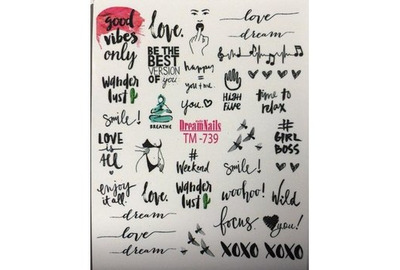 good
vibes
only
Love,
love
dream
BE THE
BEST
VERSION
OF you
happy
=
you+me
Wander
lust
HIGH
FIVE
time to
relax
Smile!
BREATHE
you
DreamNails
TM -739
#
GIRL
BOSS
LOVE
IS
ALL
#
Weekend
Smile!
enjoy
it all.
Love.
Wander
lust
woohoo!
Wild
dream
love
dream
focus
you!
XOXO XOXO